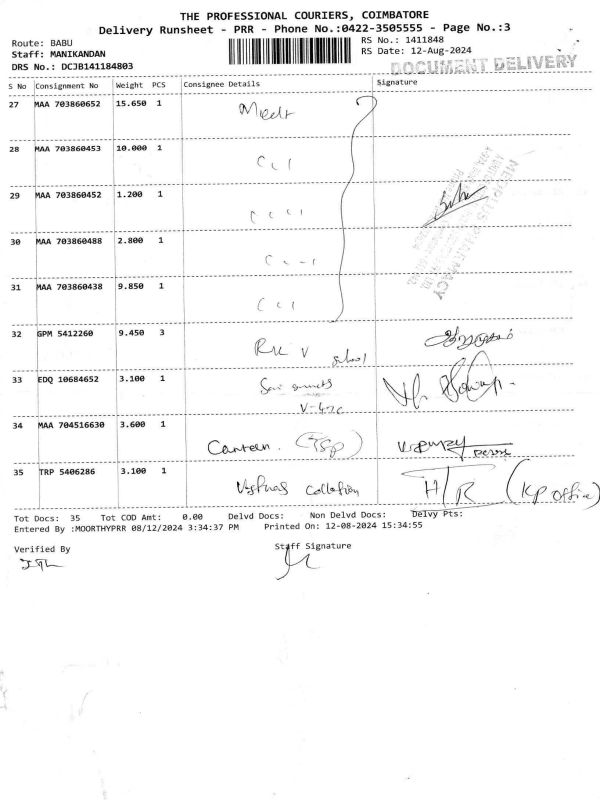 THE PROFESSIONAL COURIERS, COIMBATORE
Delivery Runsheet - PRR - Phone No.:0422-3505555 - Page No.:3
Route: BABU
RS No.: 1411848
Staff: MANIKANDAN
RS Date: 12-Aug-2024
DRS No.: DCJB141184803
DOCUMENT DELIVERY
S No Consignment No Weight PCS Consignee Details Signature
27 MAA 703860652 15.650 1
28 MAA 703860453 10.000 1
29 MAA 703860452 1.200 1
30 MAA 703860488 2.800 1
31 MAA 703860438 9.850 1
MEDPLUS PHARMACY
32 GPM 5412260 9.450 3 RK V school
33 EDQ 10684652 3.100 1
34 MAA 704516630 3.600 1 Canteen.
35 TRP 5406286 3.100 1 H/R (KP office)
Tot Docs: 35 Tot COD Amt: 0.00 Delvd Docs: Non Delvd Docs: Delvy Pts:
Entered By :MOORTHYPRR 08/12/2024 3:34:37 PM Printed On: 12-08-2024 15:34:55
Verified By
Staff Signature